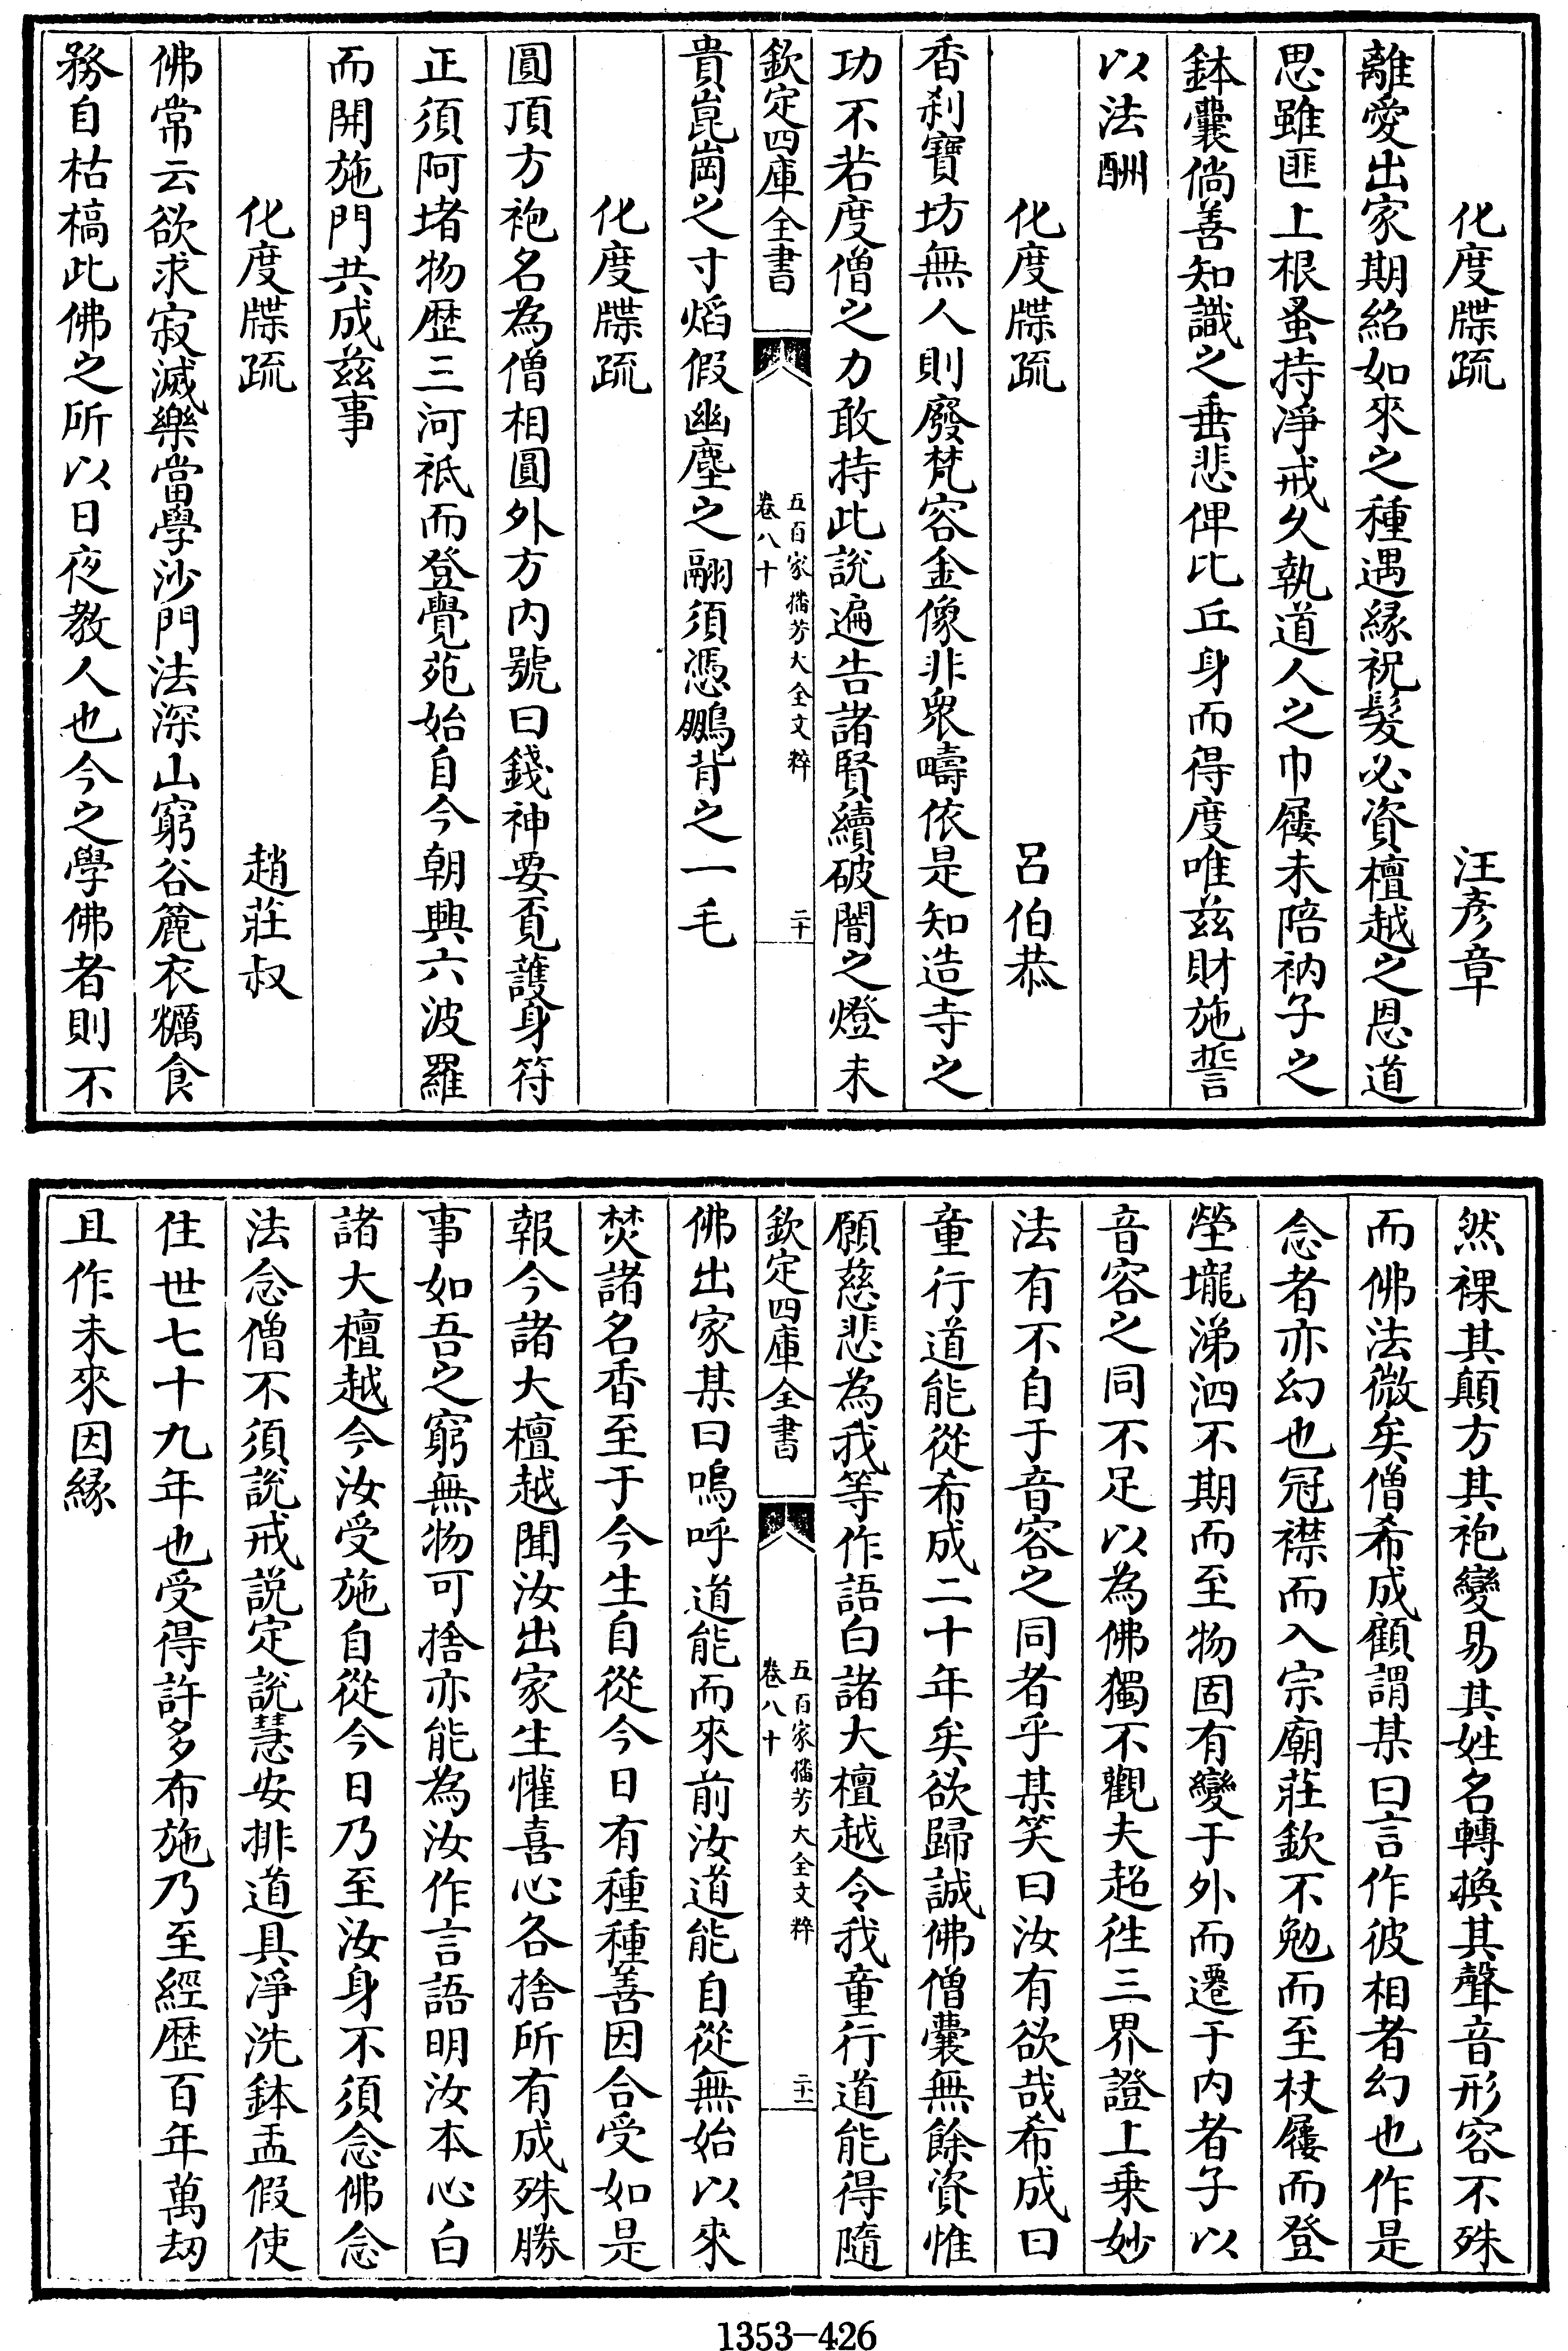 化度牒疏 汪彥章
離愛出家期紹如來之種遇緣祝髮必資檀越之恩道
思雖匪上根蚤持淨戒久執道人之巾屨未陪衲子之
鉢囊倘善知識之垂悲俾比丘身而得度唯茲財施誓
以法酬
化度牒疏 呂伯恭
香刹寶坊無人則廢梵容金像非衆疇依是知造寺之
功不若度僧之力敢持此說遍告諸賢續破闇之燈未
欽定四庫全書
五百家播芳大全文粹
卷八十
二十
貴崑崗之寸熖假幽塵之翮須憑鵬背之一毛
化度牒疏
圓頂方袍名為僧相圓外方内號曰錢神要覓護身符
正須阿堵物歷三河祗而登覺苑始自今朝興六波羅
而開施門共成茲事
化度牒疏 趙莊叔
佛常云欲求寂滅樂當學沙門法深山窮谷麄衣糲食
務自枯槁此佛之所以日夜教人也今之學佛者則不
然裸其顛方其袍變易其姓名轉換其聲音形容不殊
而佛法微矣僧希成顧謂某曰言作彼相者幻也作是
念者亦幻也冠襟而入宗廟莊欽不勉而至杖屨而登
塋壠涕泗不期而至物固有變于外而遷于内者子以
音容之同不足以為佛獨不觀夫超徃三界證上乗妙
法有不自于音容之同者乎某笑曰汝有欲哉希成曰
童行道能從希成二十年矣欲歸誠佛僧囊無餘資惟
願慈悲為我等作語白諸大檀越令我童行道能得隨
欽定四庫全書
五百家播芳大全文粹
卷八十
二十一
佛出家某曰嗚呼道能而來前汝道能自從無始以來
焚諸名香至于今生自從今日有種種善因合受如是
報今諸大檀越聞汝出家生懽喜心各捨所有成殊勝
事如吾之窮無物可捨亦能為汝作言語明汝本心白
諸大檀越今汝受施自從今日乃至汝身不須念佛念
法念僧不須說戒說定說慧安排道具淨洗鉢盂假使
住世七十九年也受得許多布施乃至經歷百年萬劫
且作未來因緣
1353—426